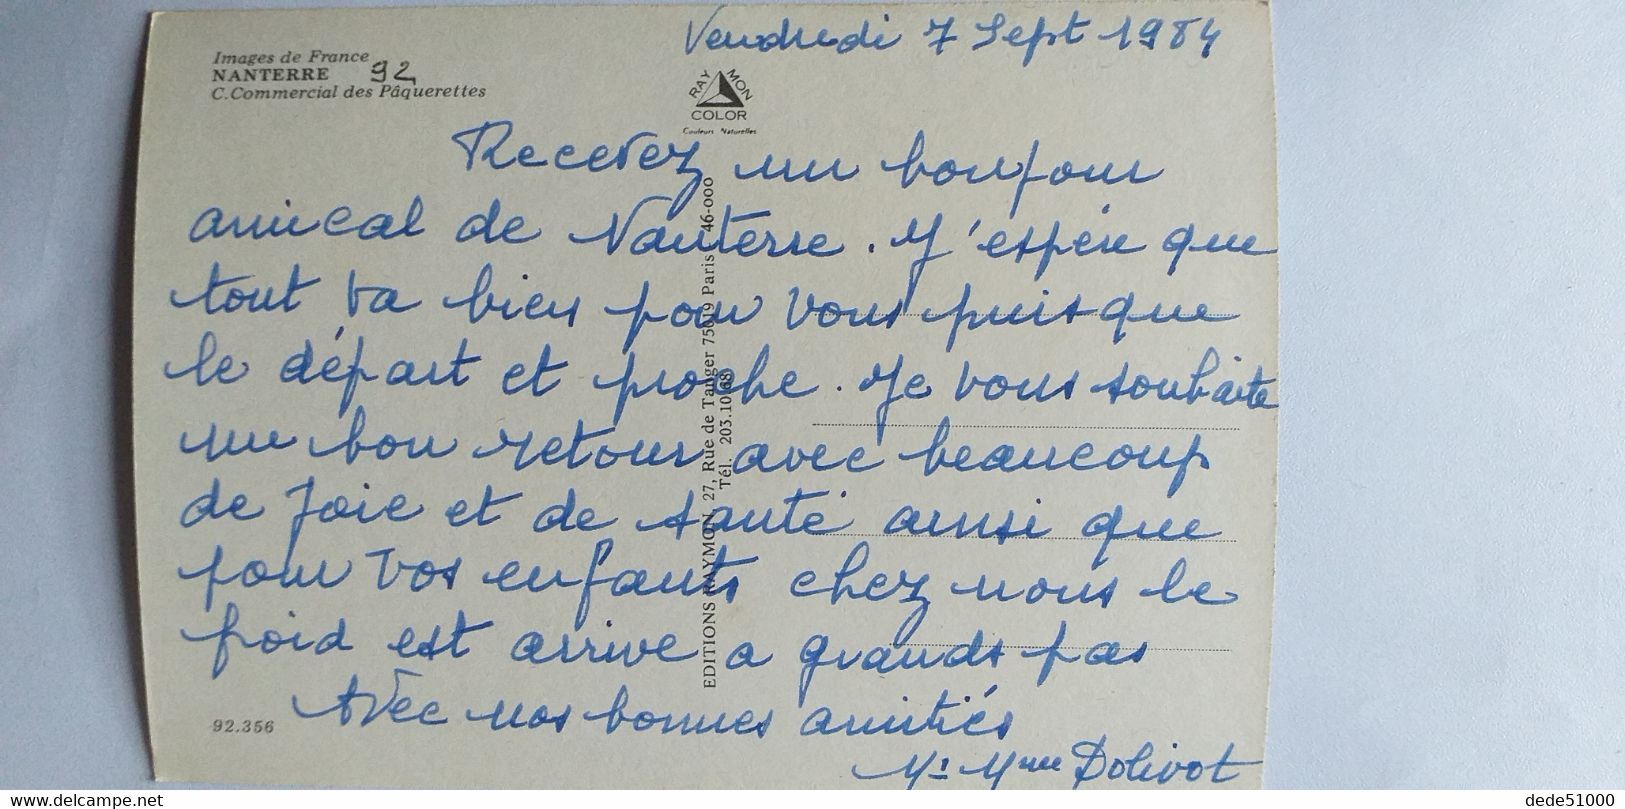 Vendredi 7 Sept 1984
Images de France
NANTERRE 92
C.Commercial des Pâquerettes
RAYMON
COLOR
Couleurs Naturelles
Recevez un bonjour
amical de Nanterre. J'espère que
tout va bien pour vous puisque
le départ et proche. Je vous souhaite
un bon retour avec beaucoup
de joie et de santé ainsi que
pour vos enfants chez nous le
froid est arrive a grands pas
Avec nos bonnes amitiés
Mr Mme Dolivot
EDITIONS RAYMON, 27, Rue de Tanger 75019 Paris 46-000
Tél. 203.10.68
92.356
dede51000